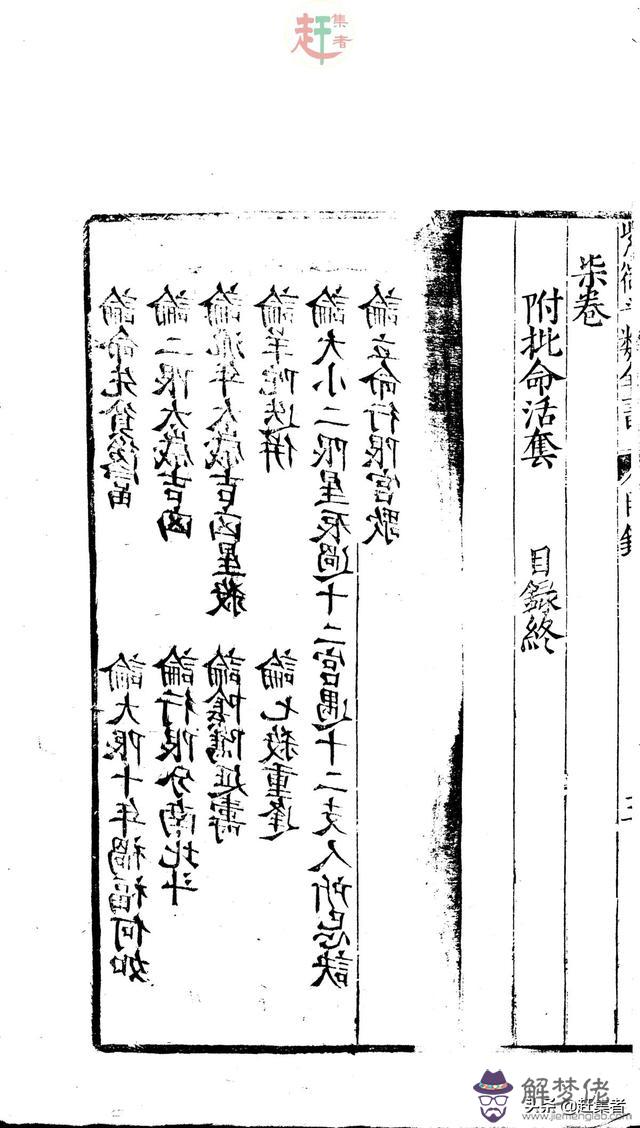 赶集者
柒卷
附批命活套 目録終
論命先貧後富 論大限十年禍福何如
論二限太歲吉凶 論行限分南北斗
論流年太歲吉凶星殺 論陰騭延壽
論羊陀迭併 論七殺重逢
論大小二限星辰過十二宮遇十二支人所忌訣
論立命行限宮歌
解梦佬
头条 @赶集者